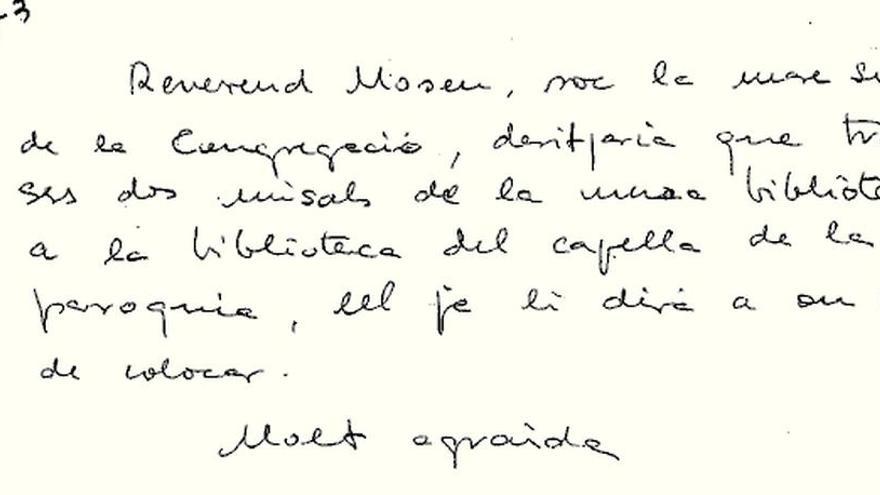 -3
Reverend Mosen, soc la mare Su
de la Congregació, desitjaria que tr
ses dos misals de la meva bibliote
a la biblioteca del capella de la
paroquia, ell je li dirà a on
de colocar.
Molt agraida